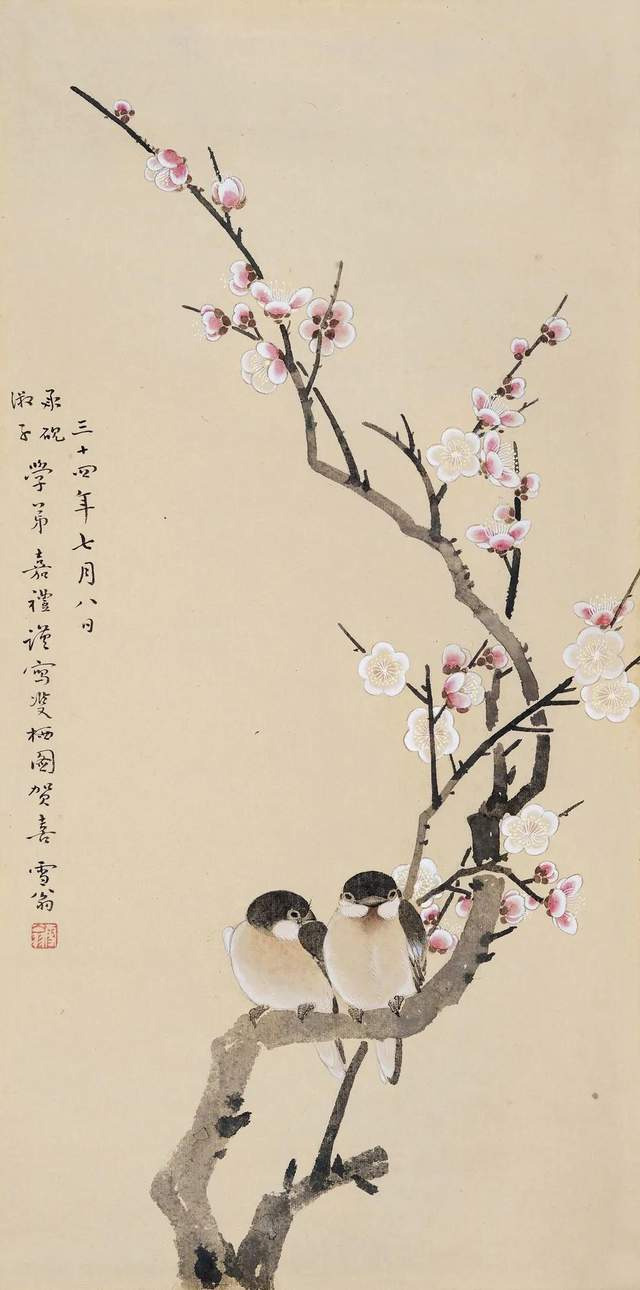 三十四年七月八日
承硯
淑子
学弟嘉禮謹寫雙栖圖賀喜 雪翁